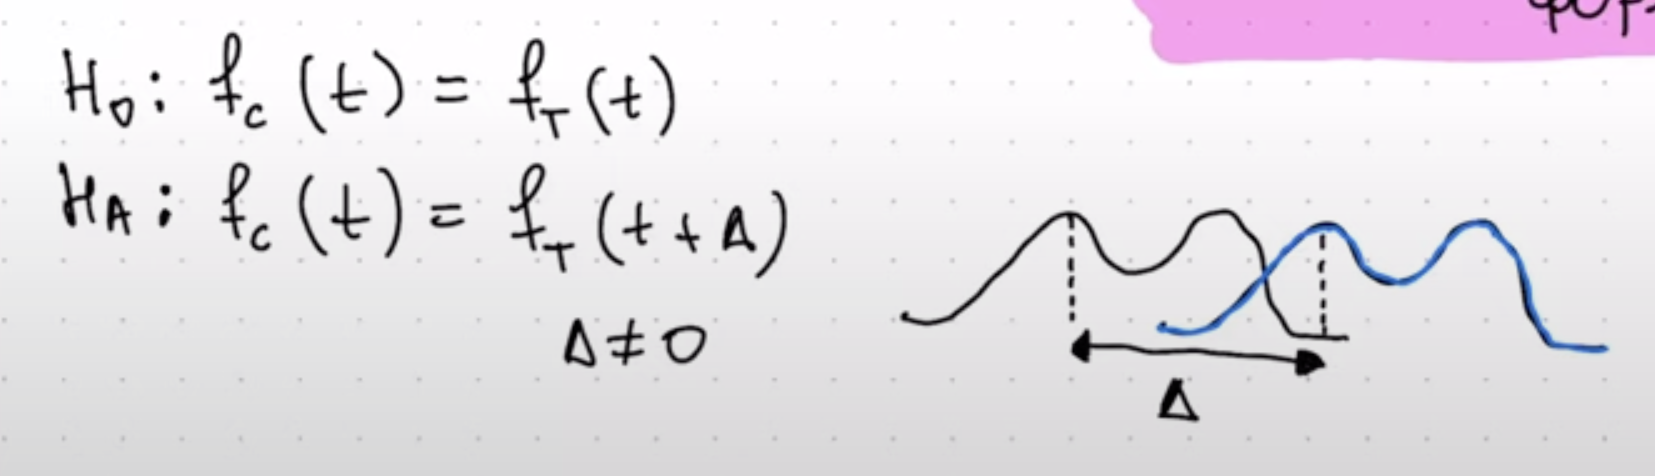 H₀: f_c (t) = f_T (t)
H_A: f_c (t) = f_T (t + Δ)
Δ ≠ 0
Δ